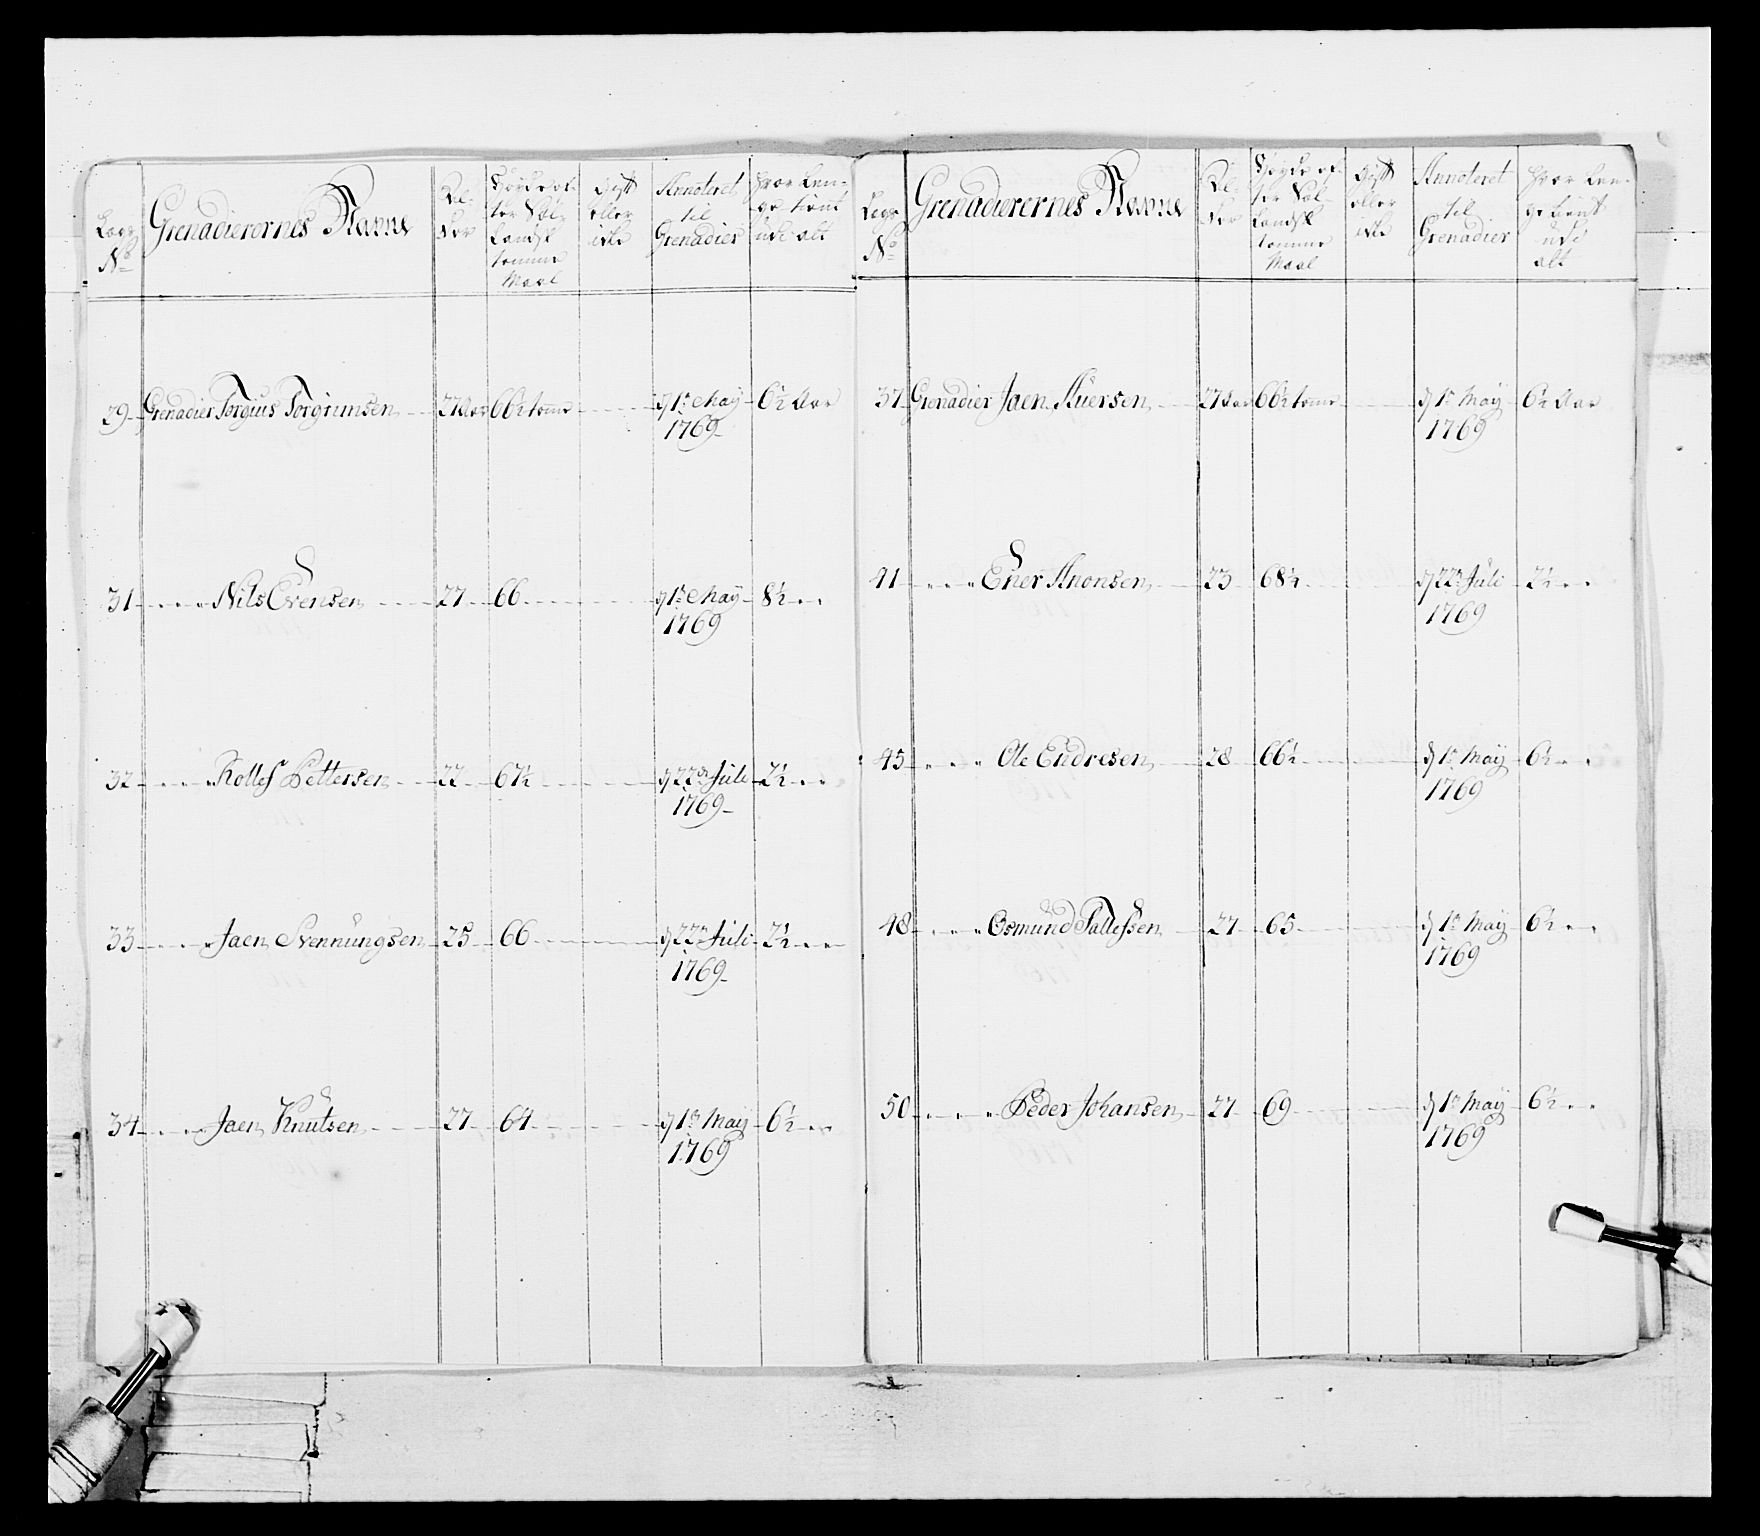 Legs No Grenadierernes Navne Al- der Høyde ef- ter Sæl- landsk tomme Maal Gift eller ikke Annoteret til Grenadier Hvor len- ge tient udi alt
29 Grenadier Torgius Torgrimsen 27 Aar 66½ tome d 1te May 1769 6½ Aar
31 " " " Nils Evensen 27 66 d 1te May 1769 8½ " "
32 " " " Rollef Pettersen 22 67½ d 22de Juli 1769 2½ " "
33 " " " Jaen Svennungsen 25 66 d 22de Juli 1769 2½ " "
34 " " " Jaen Knutsen 27 64 d 1te May 1769 6½ " "
Legs No Grenadierernes Navne Al- der Høyde ef- ter Sæl- landsk tomme Maal Gift eller ikke Annoteret til Grenadier Hvor len- ge tient udi alt
37 Grenadier Jaen Auersen 27 Aar 66½ tome d 1te May 1769 6½ Aar
41 " " " Ener Anonsen 23 68½ d 22de Juli 1769 2½ " "
45 " " " Ole Endresen 28 66½ d 1te May 1769 6½ " "
48 " " " Osmund Tallefssen 27 65 d 1te May 1769 6½ " "
50 " " " Peder Johansen 27 69 d 1te May 1769 6½ " "